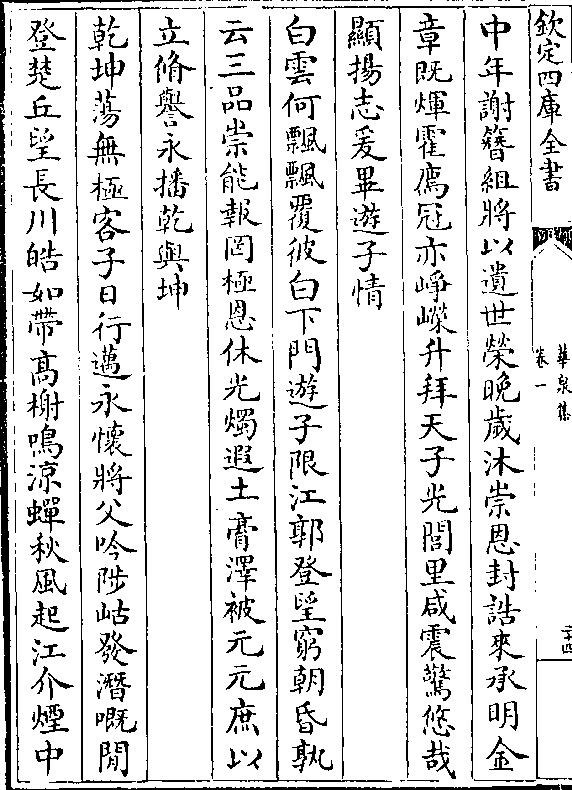 欽定四庫全書
華泉集
卷一
二十四
中年謝簪組將以遺世榮晚歲沐崇恩封誥來承明金
章既煇霍廌冠亦崢嶸升拜天子光閭里咸震驚悠哉
顯揚志爰畢遊子情
白雲何飄飄覆彼白下門遊子限江郭登望窮朝昏孰
云三品崇能報罔極恩休光燭遐土膏澤被元元庶以
立脩譽永播乾與坤
乾坤蕩無極客子日行邁永懷將父吟陟岵發潛嘅閒
登楚丘望長川皓如帶高樹鳴涼蟬秋風起江介煙中